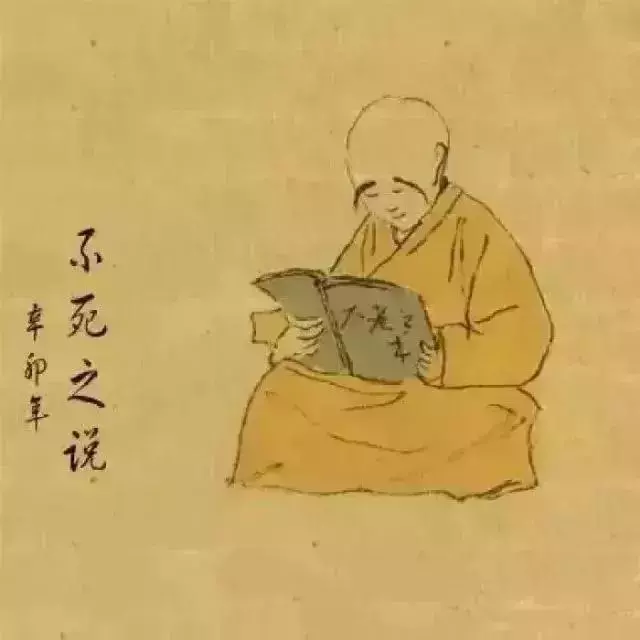 不死之说
辛卯年